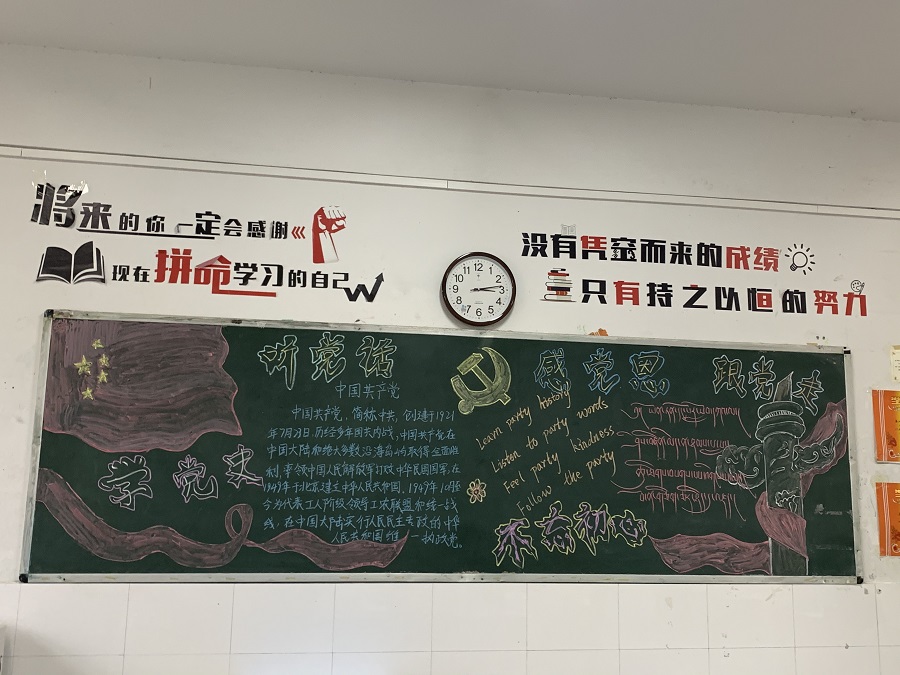 将来的你一定会感谢
现在拼命学习的自己
没有凭空而来的成绩
只有持之以恒的努力
听党话
感党恩
跟党走
学党史
中国共产党
中国共产党,简称中共,创建于1921
年7月23日.历经多年国共内战,中国共产党在
中国大陆和绝大多数沿海岛屿取得全面胜
利,率领中国人民解放军打败中华民国国军,在
1949年于北京建立中华人民共和国。1949年10月至
今为代表工人阶级领导工农联盟和统一战
线,在中国大陆实行人民民主专政的中华
人民共和国唯一执政党。
Learn party history
Listen to party words
Feel party kindness
Follow the party
不忘初心